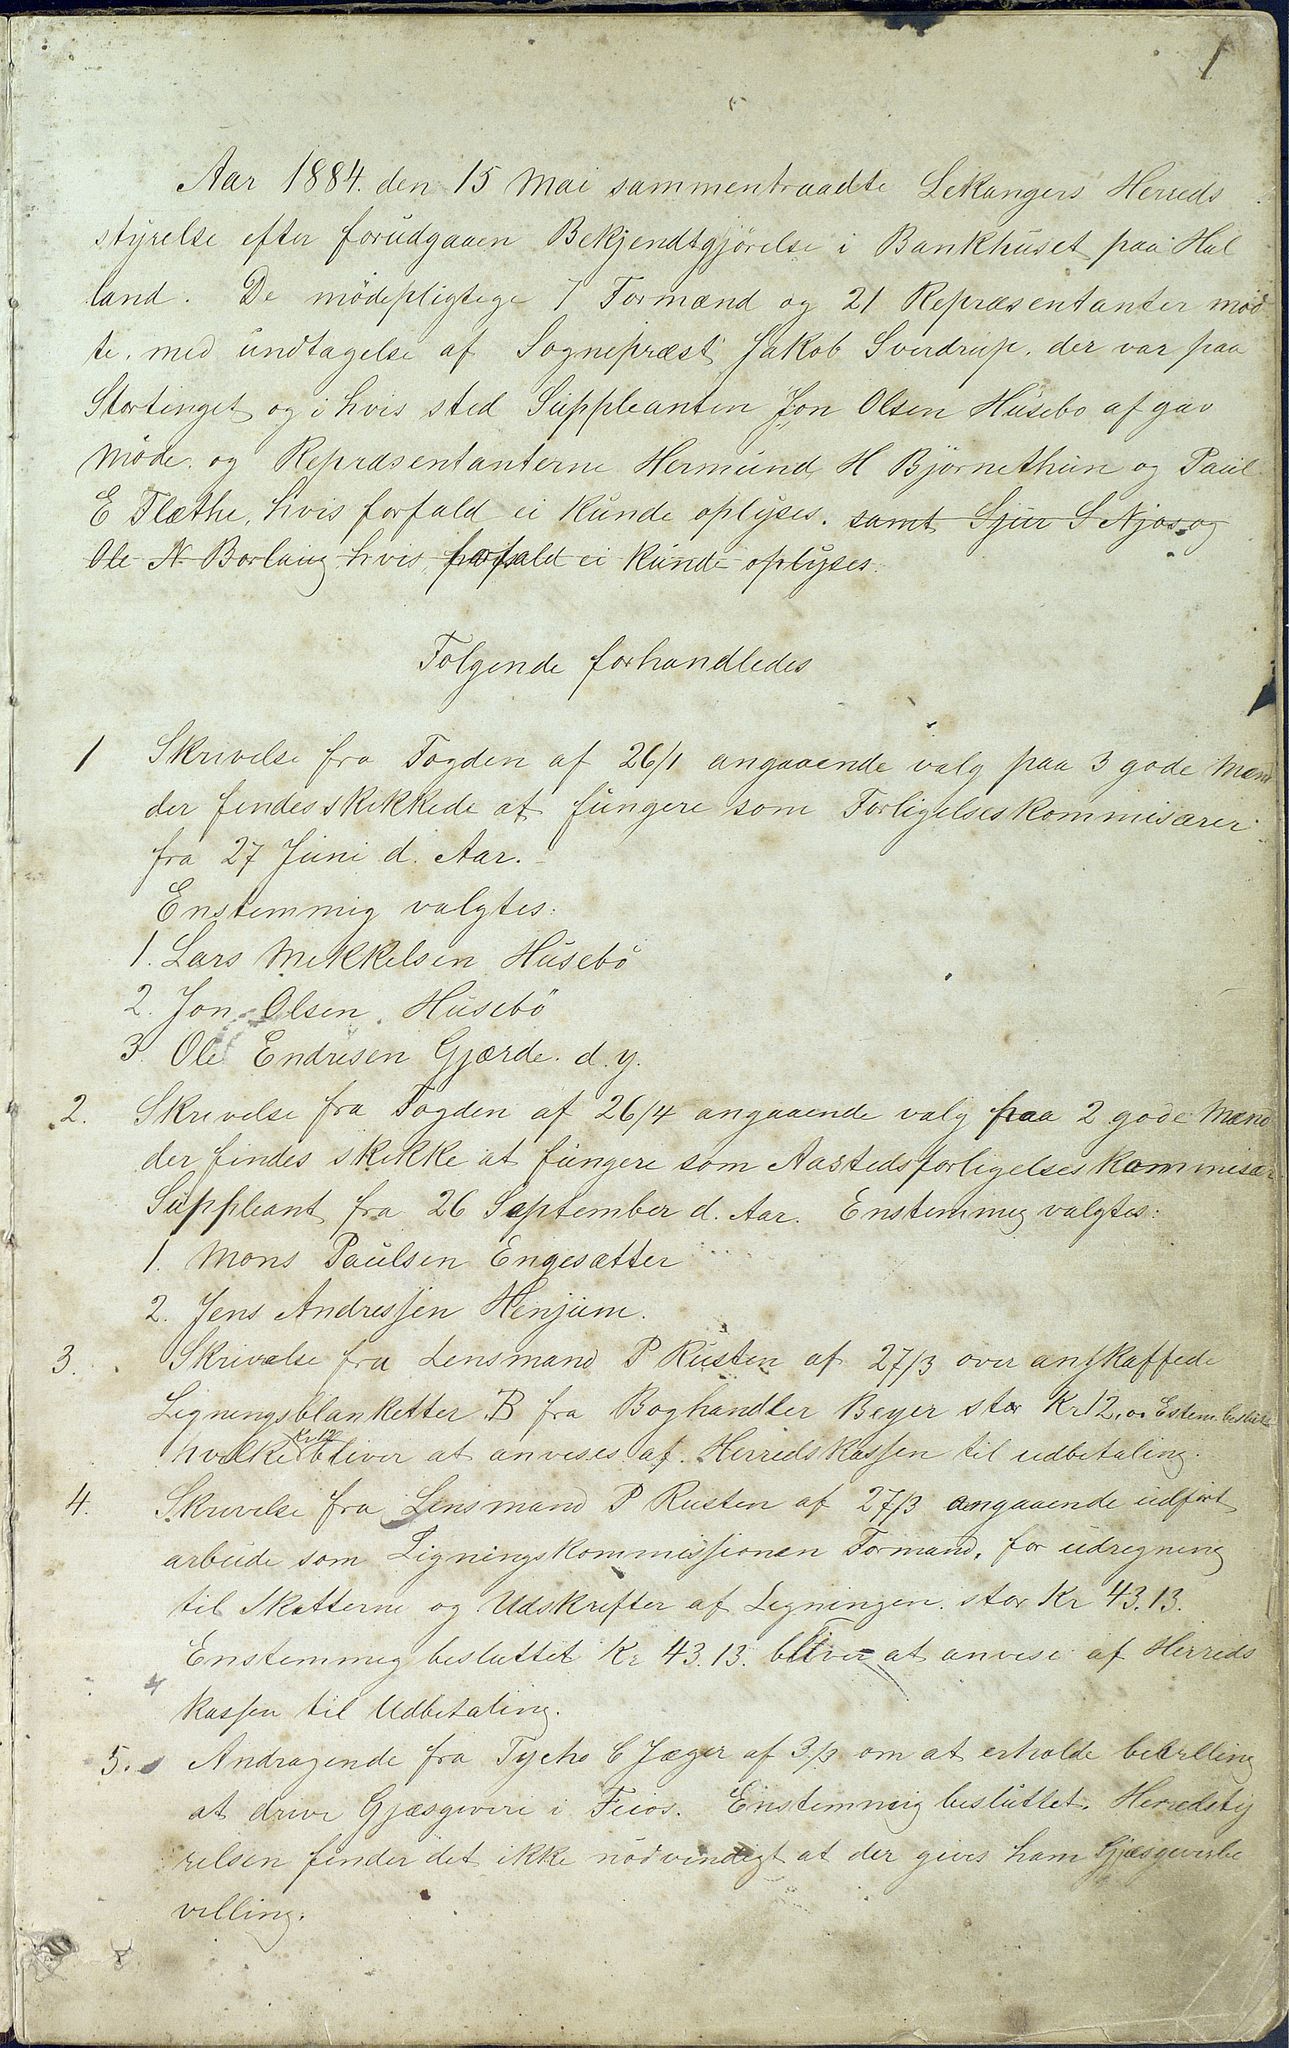 1
Aar 1884. den 15 Mai sammentraadte Lekangers Herreds
styrelse efter forudgaaen Bekjendtgjörelse i Bankhuset paa Hal
land. De mödepligtege 7 Formænd og 21 Repræsentanter möd
te. med undtagelse af Sognepræst Jakob Sverdrup. der var paa
Stortinget og i hvis sted Suppleanten Jon Olsen Husebo af gav
Möde. og Repræsentanterne Hermund H Björnethun og Paul
E Flæthe, hvis forfald ei kunde oplyses. samt Sjur S Njøs og
Ole N Borlaug hvis forfald ei kunde oplyses.
Folgende forhandledes
1 Skrivelse fra Fogden af 26/1 angaaende valg paa 3 gode Mænd
der findes skikkede at fungere som Forligelseskommisærer
fra 27 Juni d. Aar.
Enstemmig valgtes:
1. Lars Mikkelsen Husebö
2. Jon Olsen Husebö
3. Ole Endresen Gjærde. d. y.
2. Skrivelse fra Fogden af 26/4 angaaende valg paa 2 gode Mænd
der findes skikke at fungere som Aastedsforligelseskommisær
Suppleant fra 26 September d. Aar. Enstemmig valgtes:
1. Mons Paulsen Engesætter
2. Jens Andressen Henjum.
3. Skrivelse fra Lensmand P Rusten af 27/3 over anskaffede
Ligningsblanketter B fra Boghandler Beyer stor Kr 12,00 Estem. besluttet
hvilke Kr 12 bliver at anveses af Herredskassen til udbetaling.
4. Skrivelse fra Lensmand P Rusten af 27/3 angaaende udfört
arbeide som Ligningskommissionen Formand, for udregning
til Skatterne og Udskrifter af Ligningen. stor Kr 43.13.
Enstemmig besluttet Kr 43.13. bliver at anvise af Herreds
kassen til Udbetaling.
5. Andragende fra Tycho C Jæger af 3/3 om at erholde bevilling
at drive Gjæsgiveri i Feios. Enstemmig besluttet. Herredsty
relsen finder det ikke nödvendigt at der gives ham Gjæsgiverbe
villing.